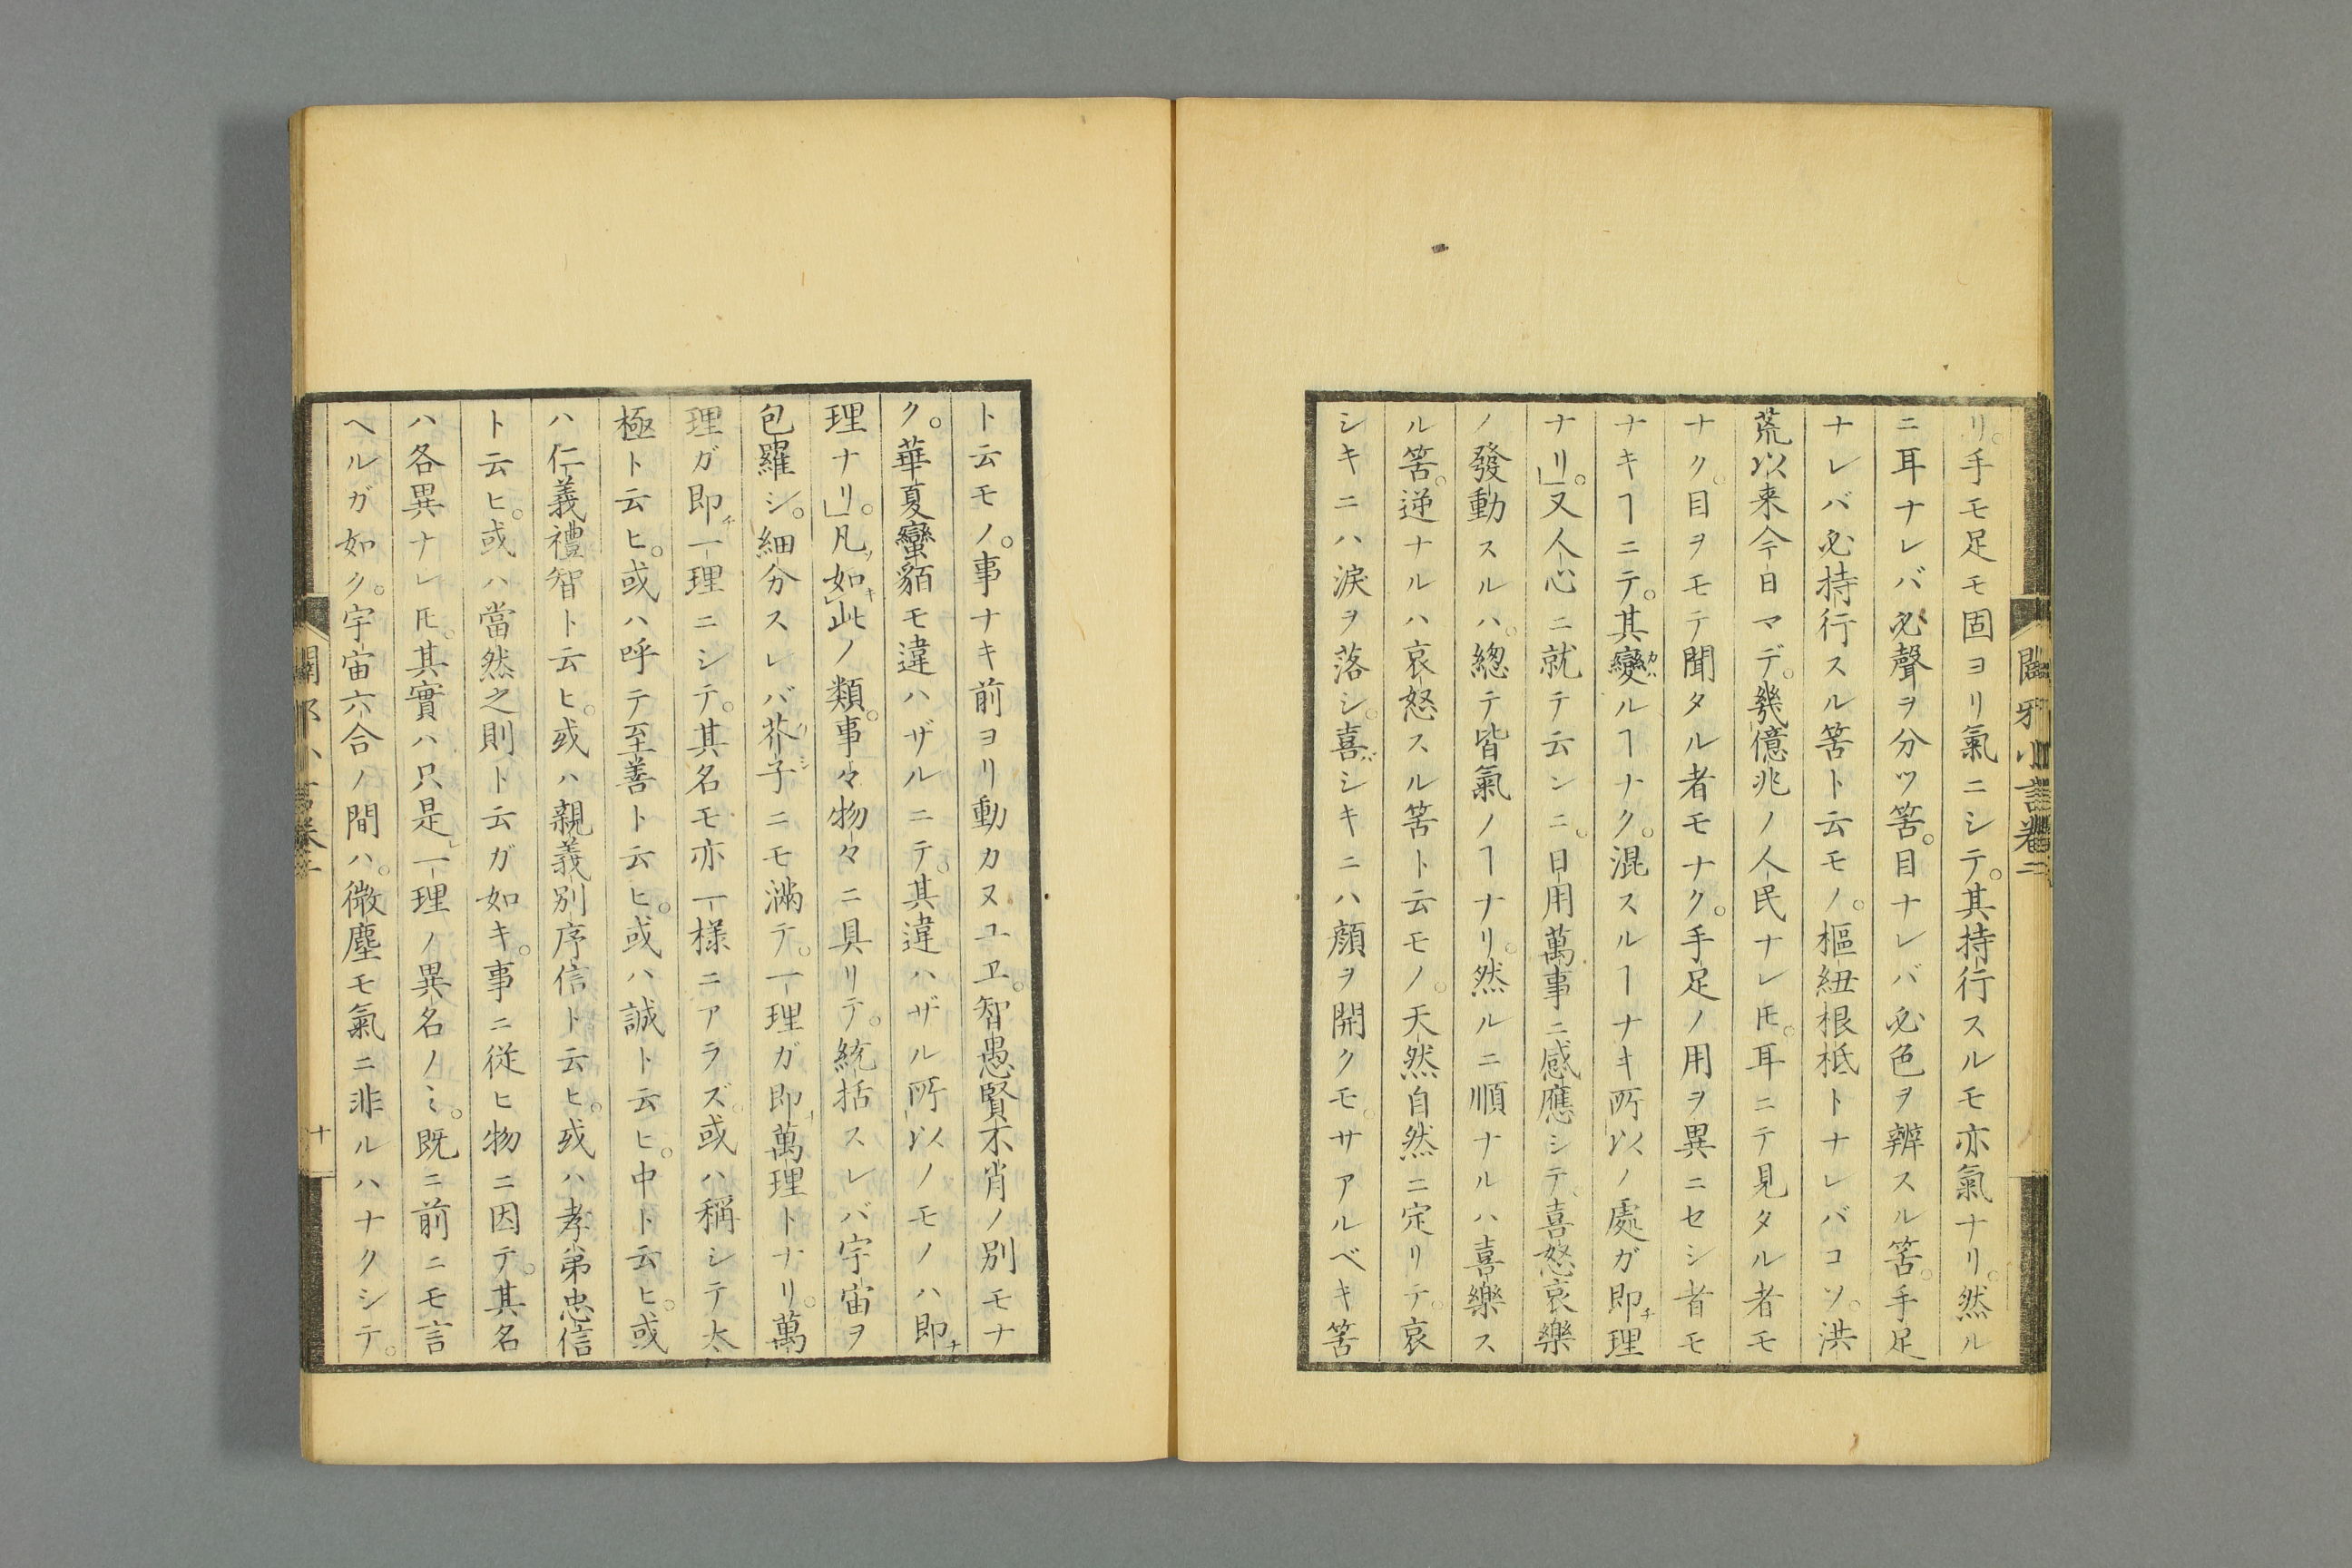 リ。手モ足モ固ヨリ氣ニシテ。其持行スルモ亦氣ナリ。然ル
ニ耳ナレバ必聲ヲ分ツ筈。目ナレバ必色ヲ辨スル筈。手足
ナレバ必持行スル筈ト云モノ。樞紐根柢トナレバコソ。洪
荒以来今日マデ。幾億兆ノ人民ナレ𪜈。耳ニテ見タル者モ
ナク。目ヲモテ聞タル者モナク。手足ノ用ヲ異ニセシ者モ
ナキヿニテ。其變ルヿナク。混スルヿナキ所以ノ處ガ即チ理
ナリ」。又人心ニ就テ云ンニ。日用萬事ニ感應シテ、喜怒哀樂
ノ發動スルハ。總テ皆氣ノヿナリ。然ルニ順ナルハ喜樂ス
ル筈。逆ナルハ哀怒スル筈ト云モノ。天然自然ニ定リテ。哀
シキニハ涙ヲ落シ。喜バシキニハ顔ヲ開クモ。サアルベキ筈
ト云モノ。事ナキ前ヨリ動カヌユヱ。智愚賢不肖ノ別モナ
ク。華夏蠻貊モ違ハザルニテ。其違ハザル所以ノモノハ即チ
理ナリ」。凡ソ如キ此ノ類。事々物々ニ具リテ。統括スレバ宇宙ヲ
包羅シ。細分スレバ芥子ニモ滿テ。一理ガ即チ萬理トナリ。萬
理ガ即チ一理ニシテ。其名モ亦一樣ニアラズ。或ハ稱シテ太
極ト云ヒ。或ハ呼テ至善ト云ヒ。或ハ誠ト云ヒ。中ト云ヒ。或
ハ仁義禮智ト云ヒ。或ハ親義別序信ト云ヒ。或ハ孝弟忠信
ト云ヒ。或ハ當然之則ト云ガ如キ。事ニ從ヒ物ニ因テ。其名
ハ各異ナレ𪜈。其實ハ只是レ一理ノ異名ノミ。既ニ前ニモ言
ヘルガ如ク。宇宙六合ノ間ハ。微塵モ氣ニ非ルハナクシテ。
十